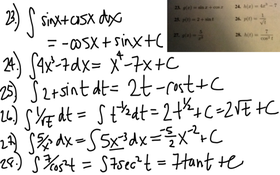 23.) ∫ sinx + cosx dx
= -cosx + sinx + C
24.) ∫ 4x³ - 7 dx = x⁴ - 7x + C
25.) ∫ 2 + sint dt = 2t - cost + C
26.) ∫ 1/√t dt = ∫ t^-1/2 dt = 2t^1/2 + C = 2√t + C
27.) ∫ 5/x³ dx = ∫ 5x^-3 dx = -5/2 x^-2 + C
28.) ∫ 7/cos²t = ∫ 7sec²t = 7tant + C